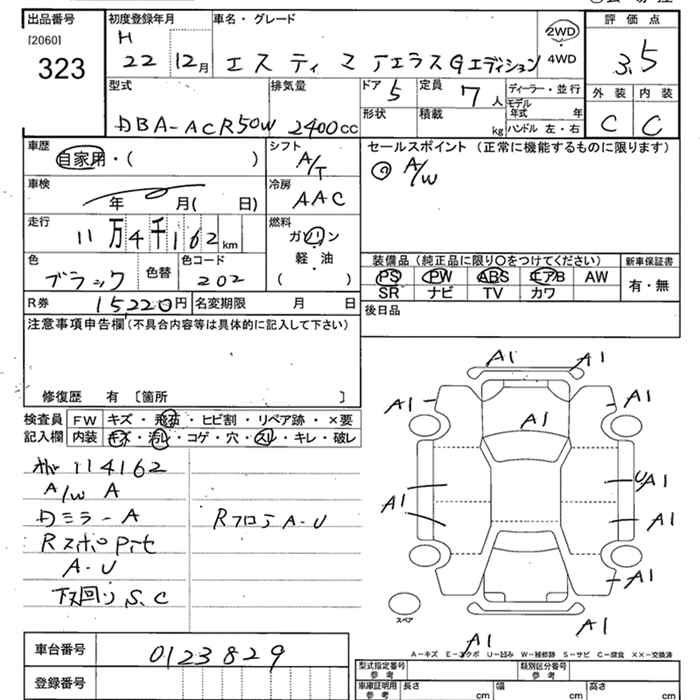 出品番号
[2060]
323
初度登録年月
H
22 12月
車名・グレード
エスティマ アエラスGエディション
2WD
4WD
評価点
3.5
外装 内装
C C
型式
DBA-ACR50W
排気量
2400cc
ドア 5
形状
定員 7人
積載 kg
ディーラー・並行
モデル年式 年
ハンドル 左・右
車歴
自家用・( )
シフト
A/T
セールスポイント (正常に機能するものに限ります)
A/W
車検
年 月( 日)
冷房
AAC
走行
11万4千162km
燃料
ガソリン
軽・油
( )
色
ブラック
色替
色コード
202
装備品 (純正品に限り○をつけてください)
PS PW ABS エアB AW
SR ナビ TV カワ
新車保証書
有・無
R券 15220円
名変期限 月 日
後日品
注意事項申告欄(不具合内容等は具体的に記入して下さい)
修復歴 有 〔箇所 〕
検査員記入欄
FW キズ・飛石・ヒビ割・リペア跡・×要
内装 キズ・汚レ・コゲ・穴・スレ・キレ・破レ
114162
A/W A
Dミラー A
A-U
下回り S、C
Rフロア A-U
A1
A1
A1
A1
A1
A1
UA1
A1
A1
A1
スペア
A-キズ E-エクボ U-凹み W-補修跡 S-サビ C-腐食 ××-交換済
車台番号
0123829
登録番号
型式指定番号
参考
類別区分番号
参考
車庫証明用
参考
長さ cm
幅 cm
高さ cm